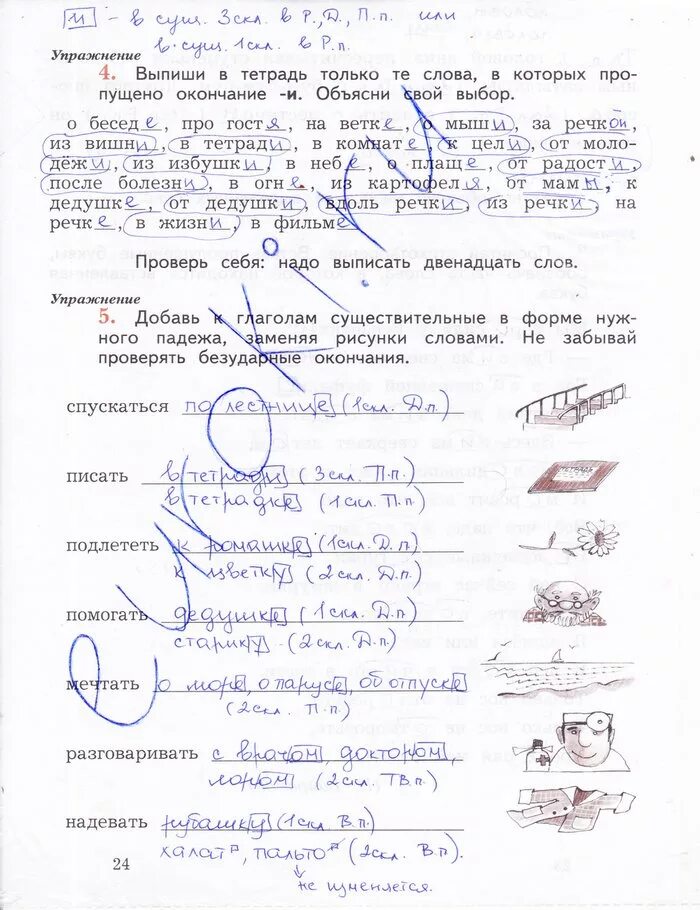 [и] – в сущ. 3 скл. в Р., Д., П.п. или
в сущ. 1 скл. в Р.п.
Упражнение
4. Выпиши в тетрадь только те слова, в которых про-
пущено окончание -и. Объясни свой выбор.
о беседе, про гостя, на ветке, о мыши, за речкой,
из вишни, в тетради, в комнате, к цели, от моло-
дёжи, из избушки, в небе, о плаще, от радости,
после болезни, в огне, из картофеля, от мамы, к
дедушке, от дедушки, вдоль речки, из речки, на
речке, в жизни, в фильме
Проверь себя: надо выписать двенадцать слов.
Упражнение
5. Добавь к глаголам существительные в форме нуж-
ного падежа, заменяя рисунки словами. Не забывай
проверять безударные окончания.
спускаться по лестнице (1 скл. Д.п.)
писать в тетради (3 скл. П.п.)
ТЕТРАДЬ
в тетрадке (1 скл. П.п.)
подлететь к ромашке (1 скл. Д.п.)
к цветку (2 скл. Д.п.)
помогать дедушке (1 скл. Д.п.)
старику (2 скл. Д.п.)
мечтать о море, о парусе, об отпуске
(2 скл. П.п.)
разговаривать с врачом, доктором,
лором (2 скл. Тв.п.)
надевать рубашку (1 скл. В.п.)
халат, пальто (2 скл. В.п.).
24
не изменяется.